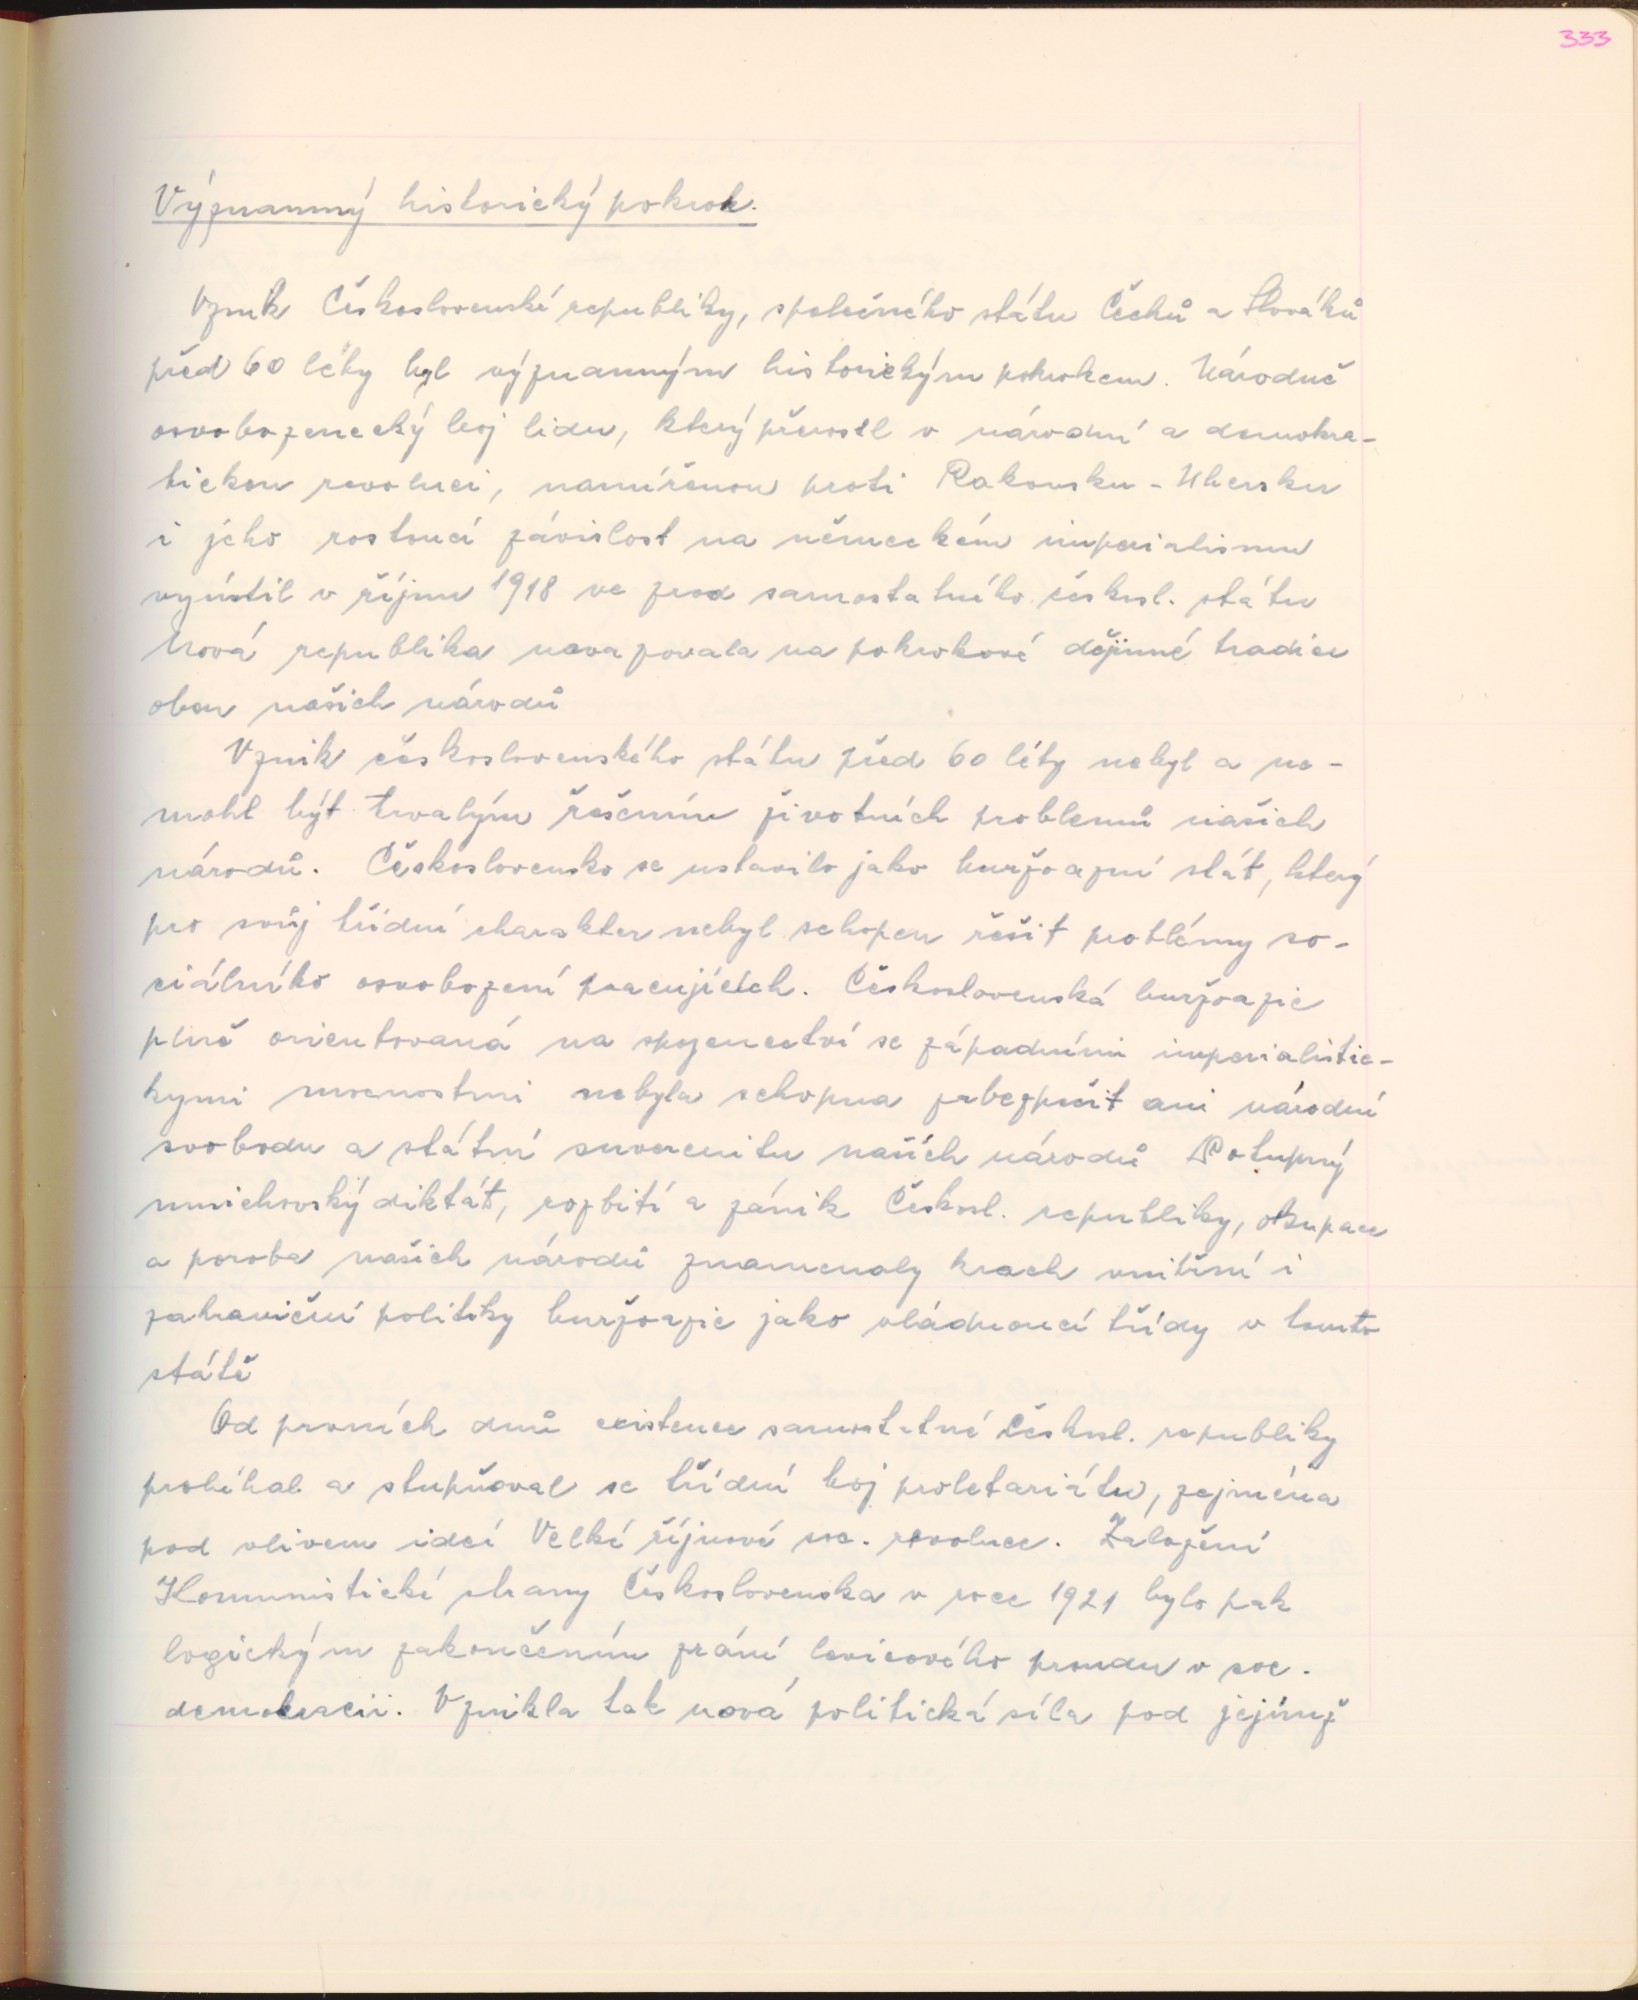 333
Významný historický pokrok.
Vznik Československé republiky, společného státu Čechů a Slováků
před 60 léty byl významným historickým pokrokem. Národně
osvobozenecký boj lidu, který přerostl v národní a demokra-
tickou revoluci, namířenou proti Rakousku - Uhersku
i jeho rostoucí závislost na německém imperialismu
vyústil v říjnu 1918 ve zrod samostatného českosl. státu
Nová republika navazovala na pokrokové dějinné tradice
obou našich národů
Vznik československého státu před 60 léty nebyl a ne-
mohl být trvalým řešením životních problemů našich
národů. Československo se ustavilo jako buržoazní stát, který
pro svůj třídní charakter nebyl schopen řešit problémy so-
ciálního osvobození pracujících. Československá buržoazie
plně orientovaná na spojenectví se západními imperialistic-
kymi mocnostmi nebyla schopna zabezpečit ani národní
svobodu a státní suverenitu našich národů Potupný
mnichovský diktát, rozbití a zánik Českosl. republiky, okupace
a poroba našich národů znamenaly krach vnitřní i
zahraniční politiky buržoazie jako vládnoucí třídy v tomto
státě
Od prvních dnů existence samostatné Českosl. republiky
probíhal a stupňoval se třídní boj proletariátu, zejména
pod vlivem idcí Velké říjnové soc. revoluce. Založení
Komunistické strany Československa v roce 1921 bylo pak
logickým zakončením zrání levicového proudu v soc.
demokracii. Vznikla tak nová politická síla pod jejímž